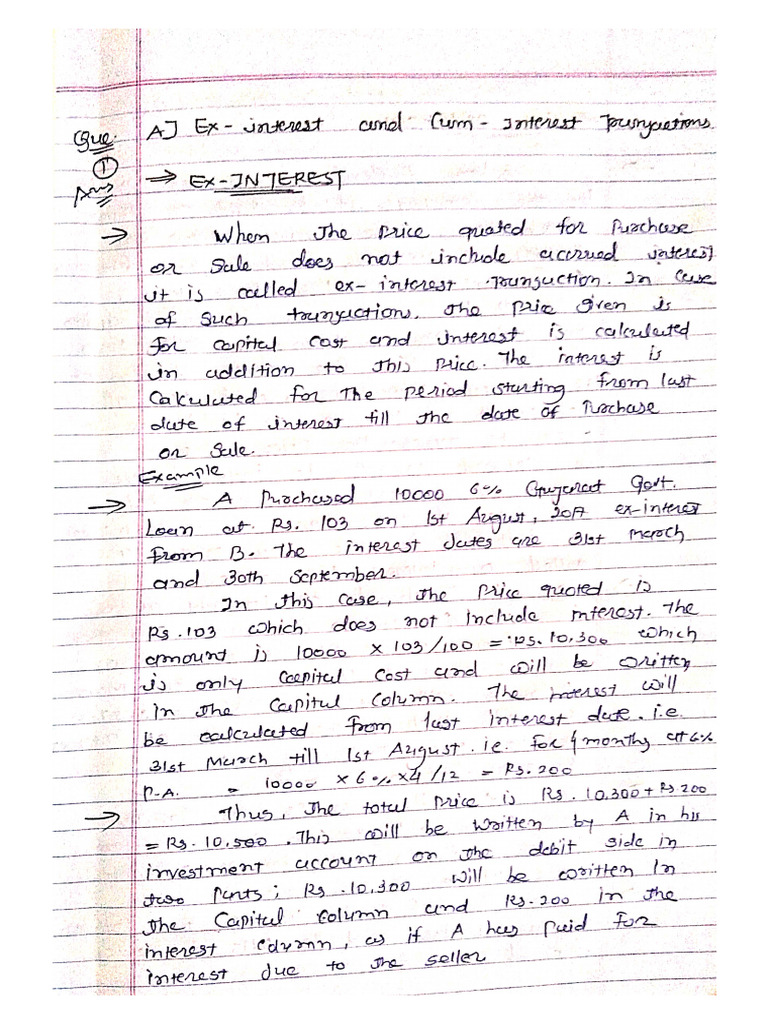 Que. A] Ex-interest and Cum-Interest Trunyactions
①
Ans ⇒ EX-INTEREST
→ When The Price quoted for Purchase
or Sale does not include accrued interest
it is called ex-interest Transuction. In Case
of Such trunyuctions, The Price Given is
for capital Cost and interest is calculated
in addition to This Price. The interest is
Calculated for The Period starting from last
date of interest till The date of Purchase
or Sale.
Example
→ A Purchased 10000 6% Gujarat Govt.
Loan at Rs. 103 on 1st August, 2017 ex-interest
from B. The interest dates are 31st March
and 30th September.
In This Case, The Price quoted is
Rs.103 which does not include interest. The
amount is 10000 x 103/100 = Rs. 10,300 which
is only Capital Cost and will be written
in The Capital Column. The interest will
be calculated from last interest date. i.e.
31st March till 1st August. ie. for 4 months at 6%
P.A. = 10000 x 6% x 4/12 = Rs. 200
→ Thus, The total Price is Rs. 10,300 + Rs 200
= Rs. 10,500. This will be written by A in his
investment account on The debit side in
two Parts; Rs. 10,300 will be written In
The Capital Column and Rs. 200 in The
interest Column, as if A has Paid for
interest due to The seller